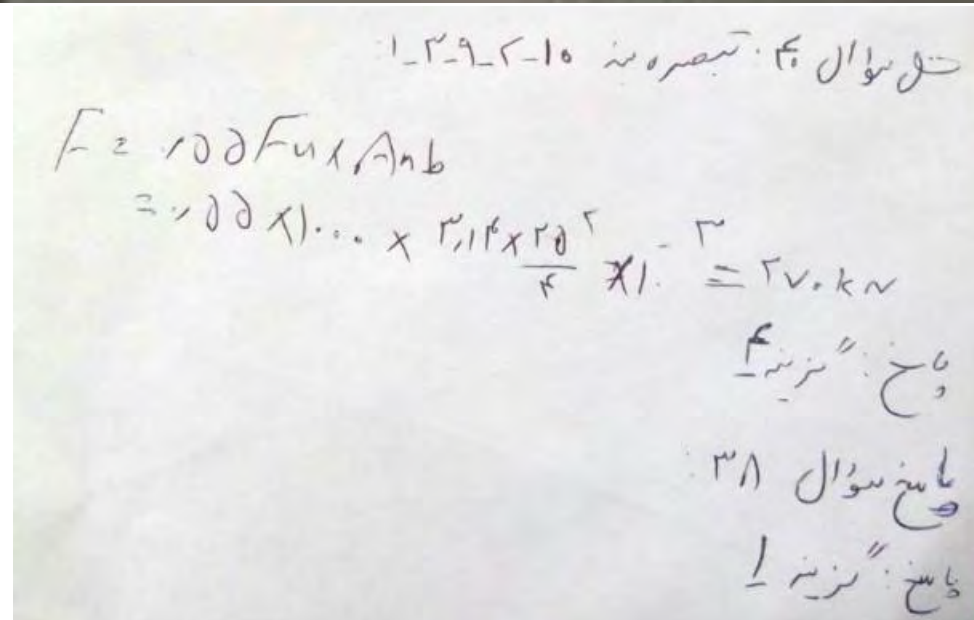 حل سوال ۴۰: تبصره بند ۱۰-۲-۹-۳-۱:
F = ۰٫۵۵ Fu × Anb
= ۰٫۵۵ × ۱۰۰۰ × ۳٫۱۴ × ۲۵^۲/۴ × ۱۰^-۳ = ۲۷۰ kN
پاسخ: گزینه ۴
پاسخ سوال ۳۸:
پاسخ: گزینه ۱